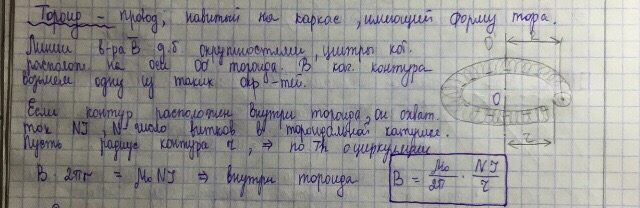 Тороид - провод, навитый на каркас, имеющий форму тора.
Линии в-ра B д.б. окружностями, центры кот.
располож. на оси OO' тороида. В кач. контура
возьмем одну из таких окр-тей.
Если контур расположен внутри тороида, он охват.
ток NI, N - число витков в тороидальной катушке.
Пусть радиус контура r, ⇒ по Th о циркуляции
B · 2πr = μ₀NI ⇒ внутри тороида B = μ₀/2π · NI/r
O' r
O
r